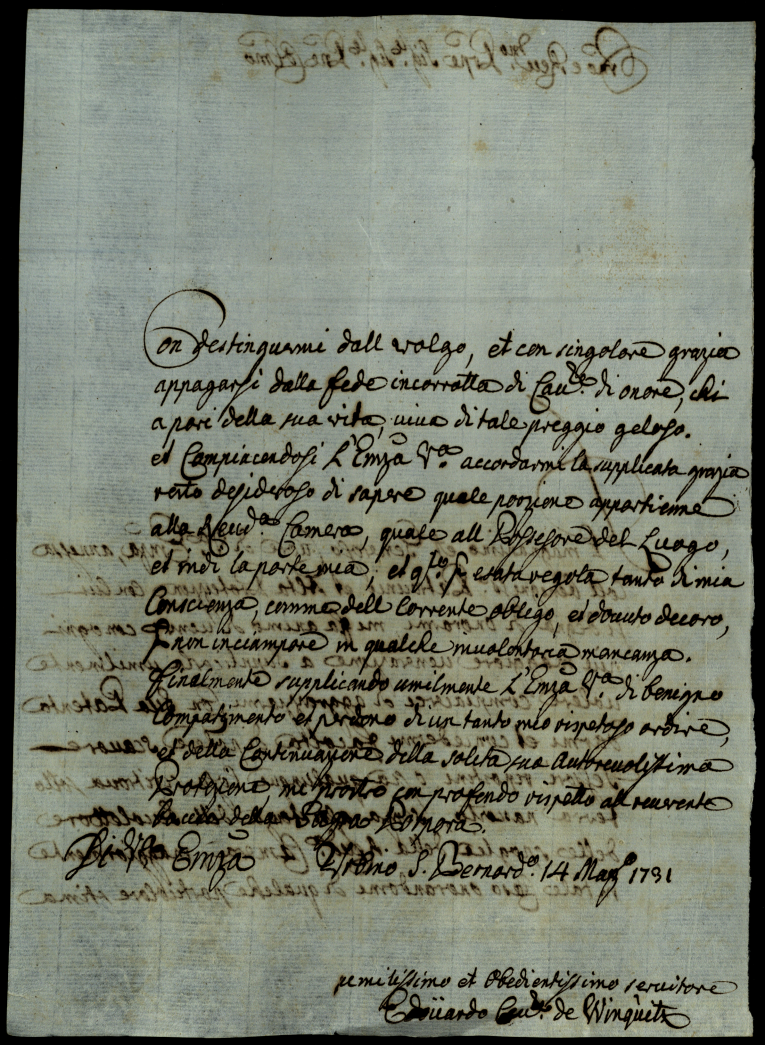 Con destinguermi dall volgo, et con singolare grazia
appagarsi dalla fede incorrotta di Cau.re di onore, chi
a pari della sua vita, viva di tale preggio geloso.
et Compiacendosi L'Emza V.a accordarmi la supplicata grazia
resto desideroso di sapere quale porzione appartienne
alla Reud.a Camera, quale all Possesore del Luogo,
et indi la parte mia, et q.to p. esata regola tanto di mia
Conscienza, comme dell Corrente obligo, et dovuto decoro,
p. non inciampare in qualche involontaria mancanza.
Finalmente supplicando umilmente L'Emza V.a di benigno
Compatimento et perdono di un tanto mio rispetoso ardire,
et della Continuazione della solita sua Autorevolissima
Protezione, mi prostro con profondo rispetto all reverente
baccio della Sagra Porpora.
Di V.ra Emza Urbino S. Bernard.o 14 Mag.o 1731
umilissimo et Obedientissimo servitore
Edöuardo Cau.re de